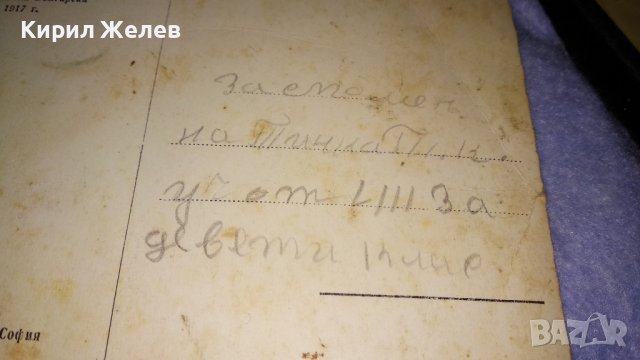 Кирил Желев
1917 г.
За спомен
на Тинка П. к.
уч от VIII за
девети клас
София
BAZAR